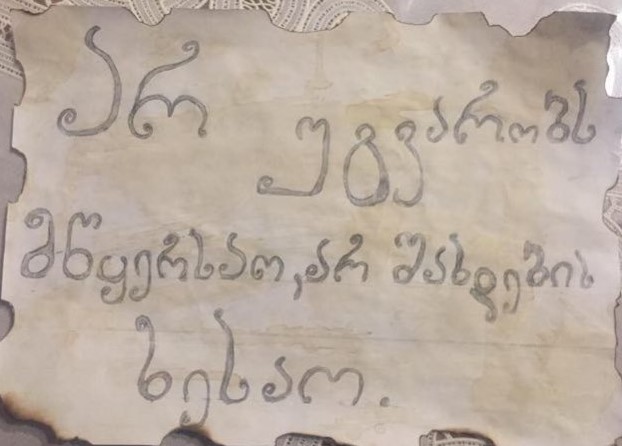 არ უგვარობს
მწყერსაო,არ შასდების
ხესაო.